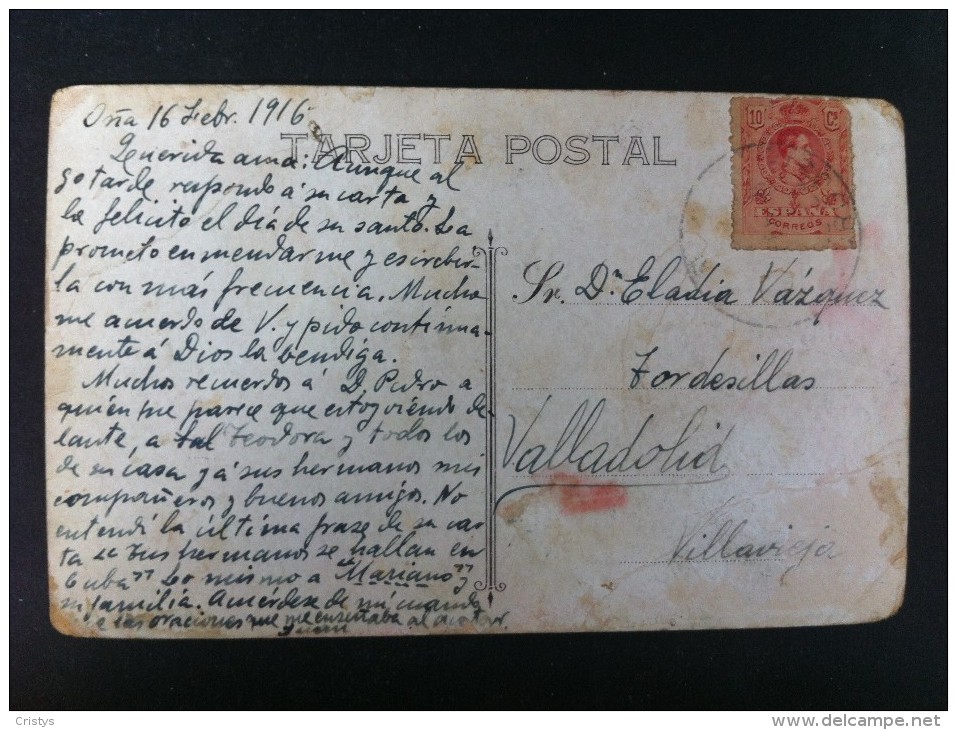 Oña 16 Febr. 1916
TARJETA POSTAL
Querida ama: Aunque al
go tarde respondo á su carta y
la felicito el día de su santo. La
prometo enmendarme y escribir-
la con más frecuencia. Mucho
me acuerdo de V. y pido continua-
mente á Dios la bendiga.
Muchos recuerdos á D. Pedro a
quien me parece que estoy viendo de
lante, a tal Teodora y todos los
de su casa y á sus hermanos mis
compañeros y buenos amigos. No
entendí la última frase de su car
ta "Sus hermanos se hallan en
Cuba" Lo mismo a "Mariano" y
familia. Acuérdese de mí cuando
oraciones que me enseñaba al acostar.
Juan
10 Cs
ESPAÑA
CORREOS
Sr. Dª Eladia Vázquez
Tordesillas
Valladolid
Villavieja
Cristys
www.delcampe.net